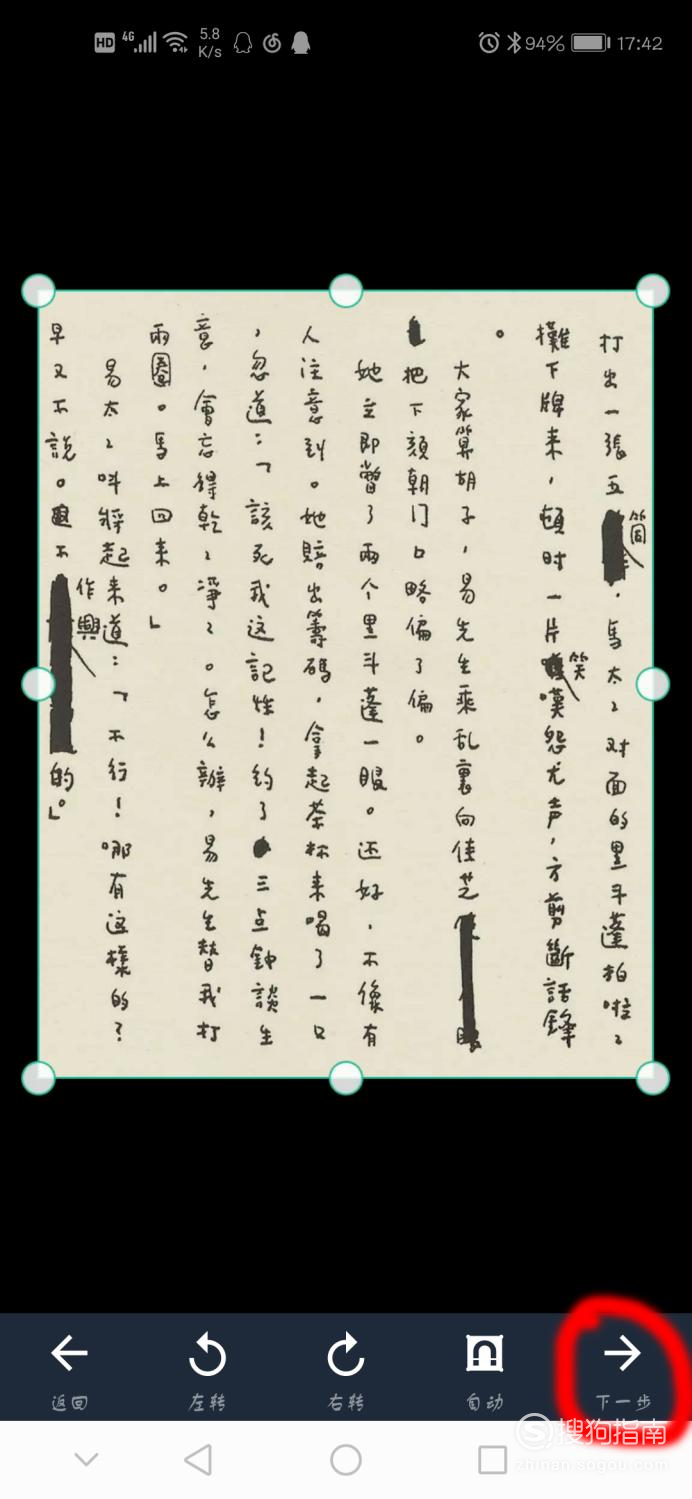 HD 4G 5.8 K/s 94% 17:42
打出一張五筒，馬太〻对面的黑斗蓬拍啦〻
攤下牌来，頓时一片笑嘆怨尤声，方剪斷話鋒
。
大家算胡子，易先生乘乱裏向佳芝
把下頦朝门口略偏了偏。
她立即瞥了兩个黑斗蓬一眼。还好，不像有
人注意到。她賠出籌碼，拿起茶杯来喝了一口
，忽道：「該死我这記性！约了三点鈡談生
意，會忘得乾〻淨〻。怎么辦，易先生替我打
兩圈。馬上回来。」
易太〻呌將起来道：「不行！哪有這樣的？
早又不說。不作興的。」
返回
左转
右转
自动
下一步
S搜狗指南
zhinan.sogou.com